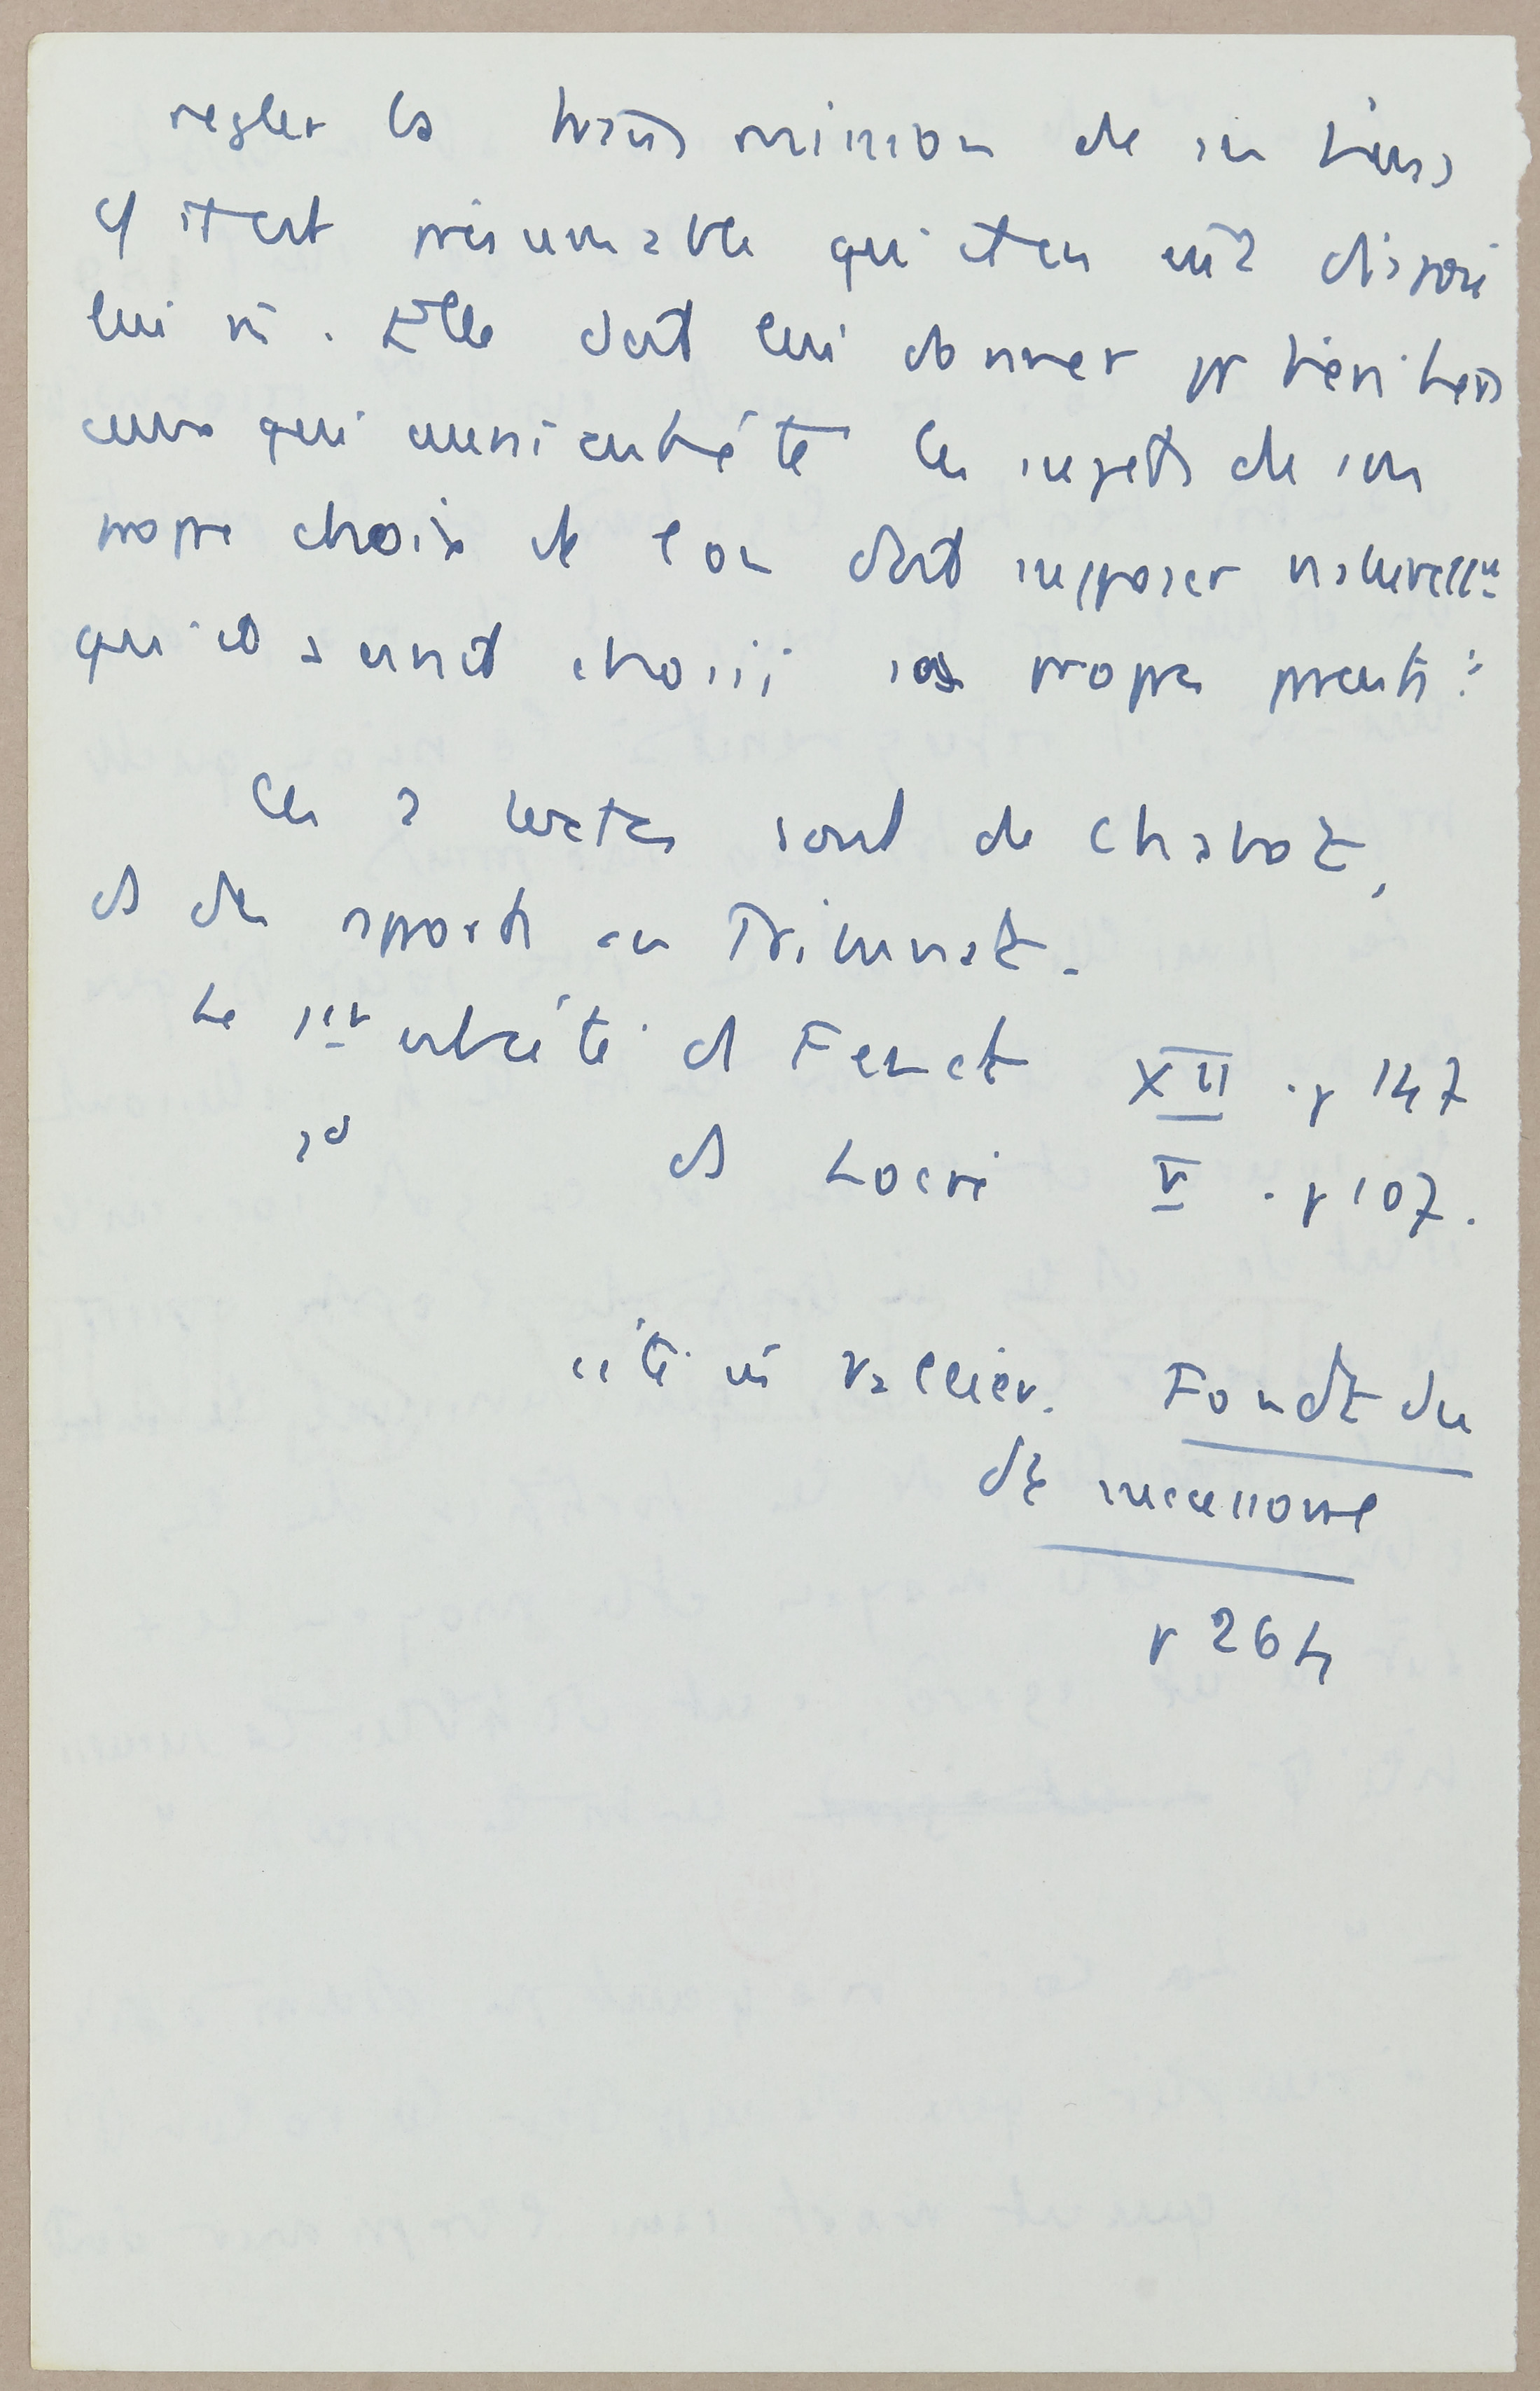 regler la transmission de ses biens
c/ il est présumable qu'il en eût disposé
lui m̂. Elle doit lui donner pr héritiers
ceux qui auraient été les sujets de son
propre choix et l'on doit supposer naturellt
qu'il aurait choisi ses propres parents :
Ces 2 textes sont de Chabot,
ds des rapports au Tribunat.
Le 1er est cité ds Fenet XII . p 147
2d ds Locré V . p 107.
cité in Vallier. Fondt du
dt successoral
p 264